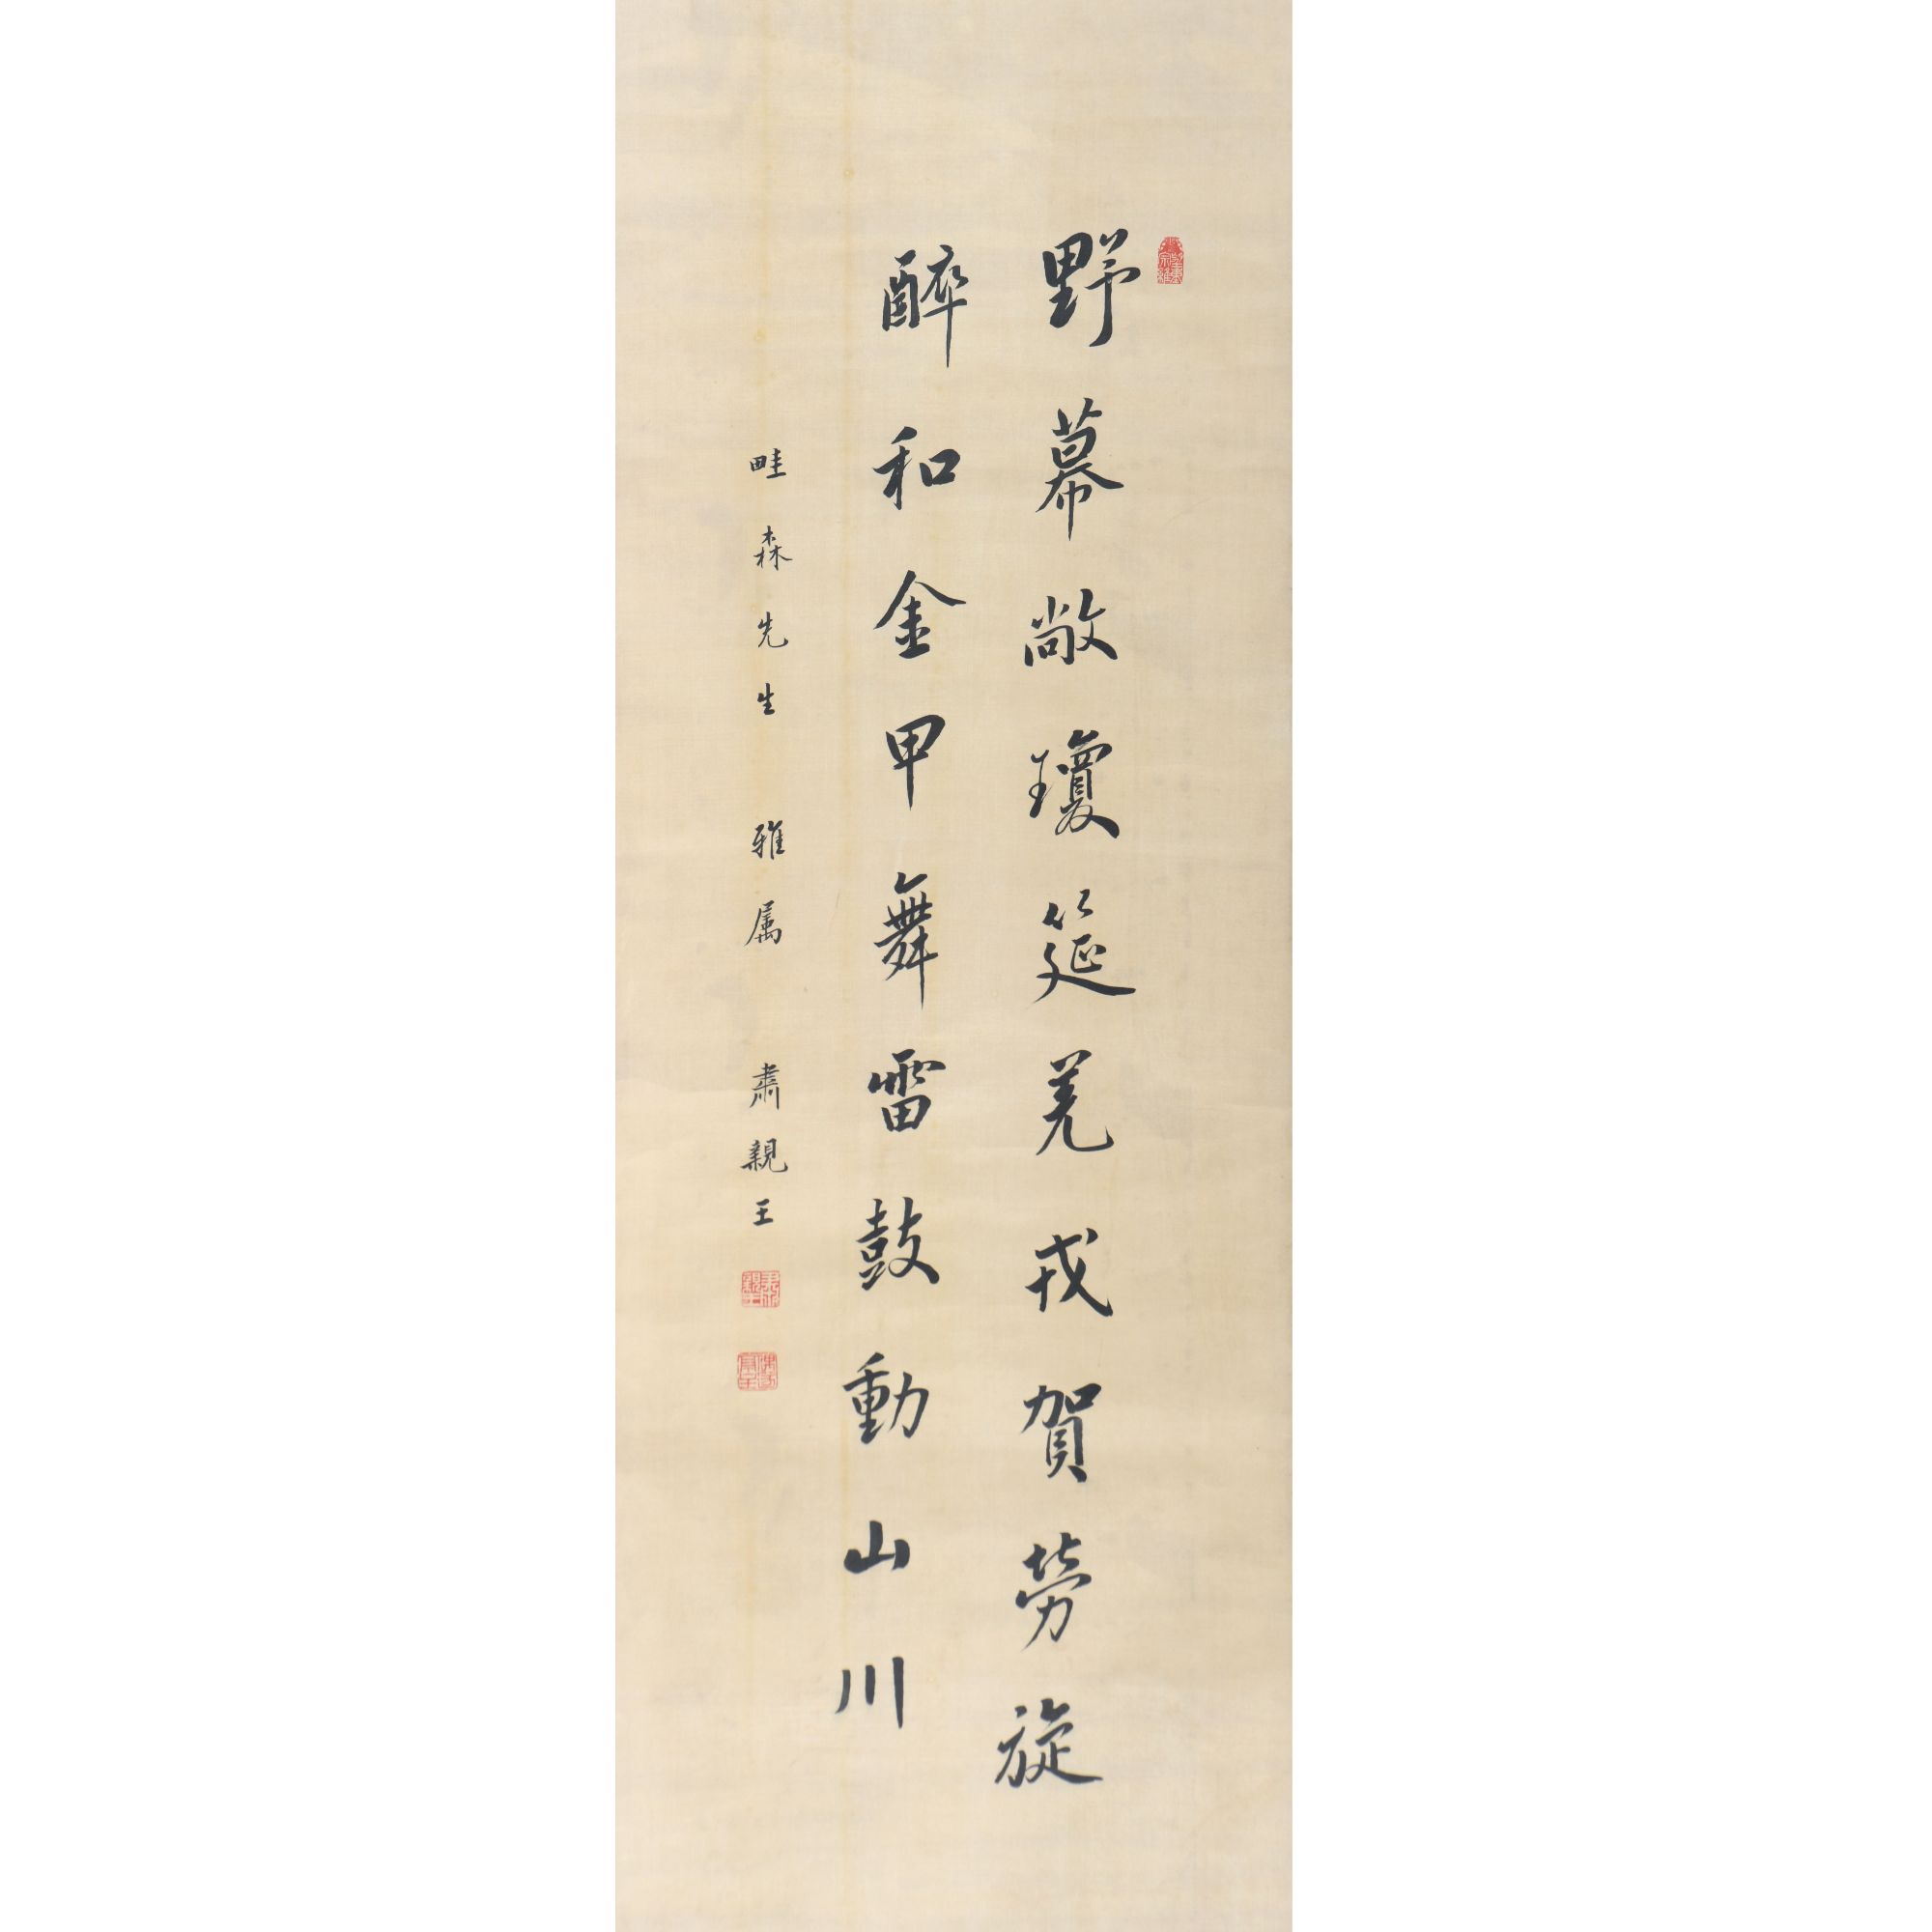 野幕敞瓊筵羌戎賀勞旋
醉和金甲舞雷鼓動山川
畦森先生 雅属 肅親王